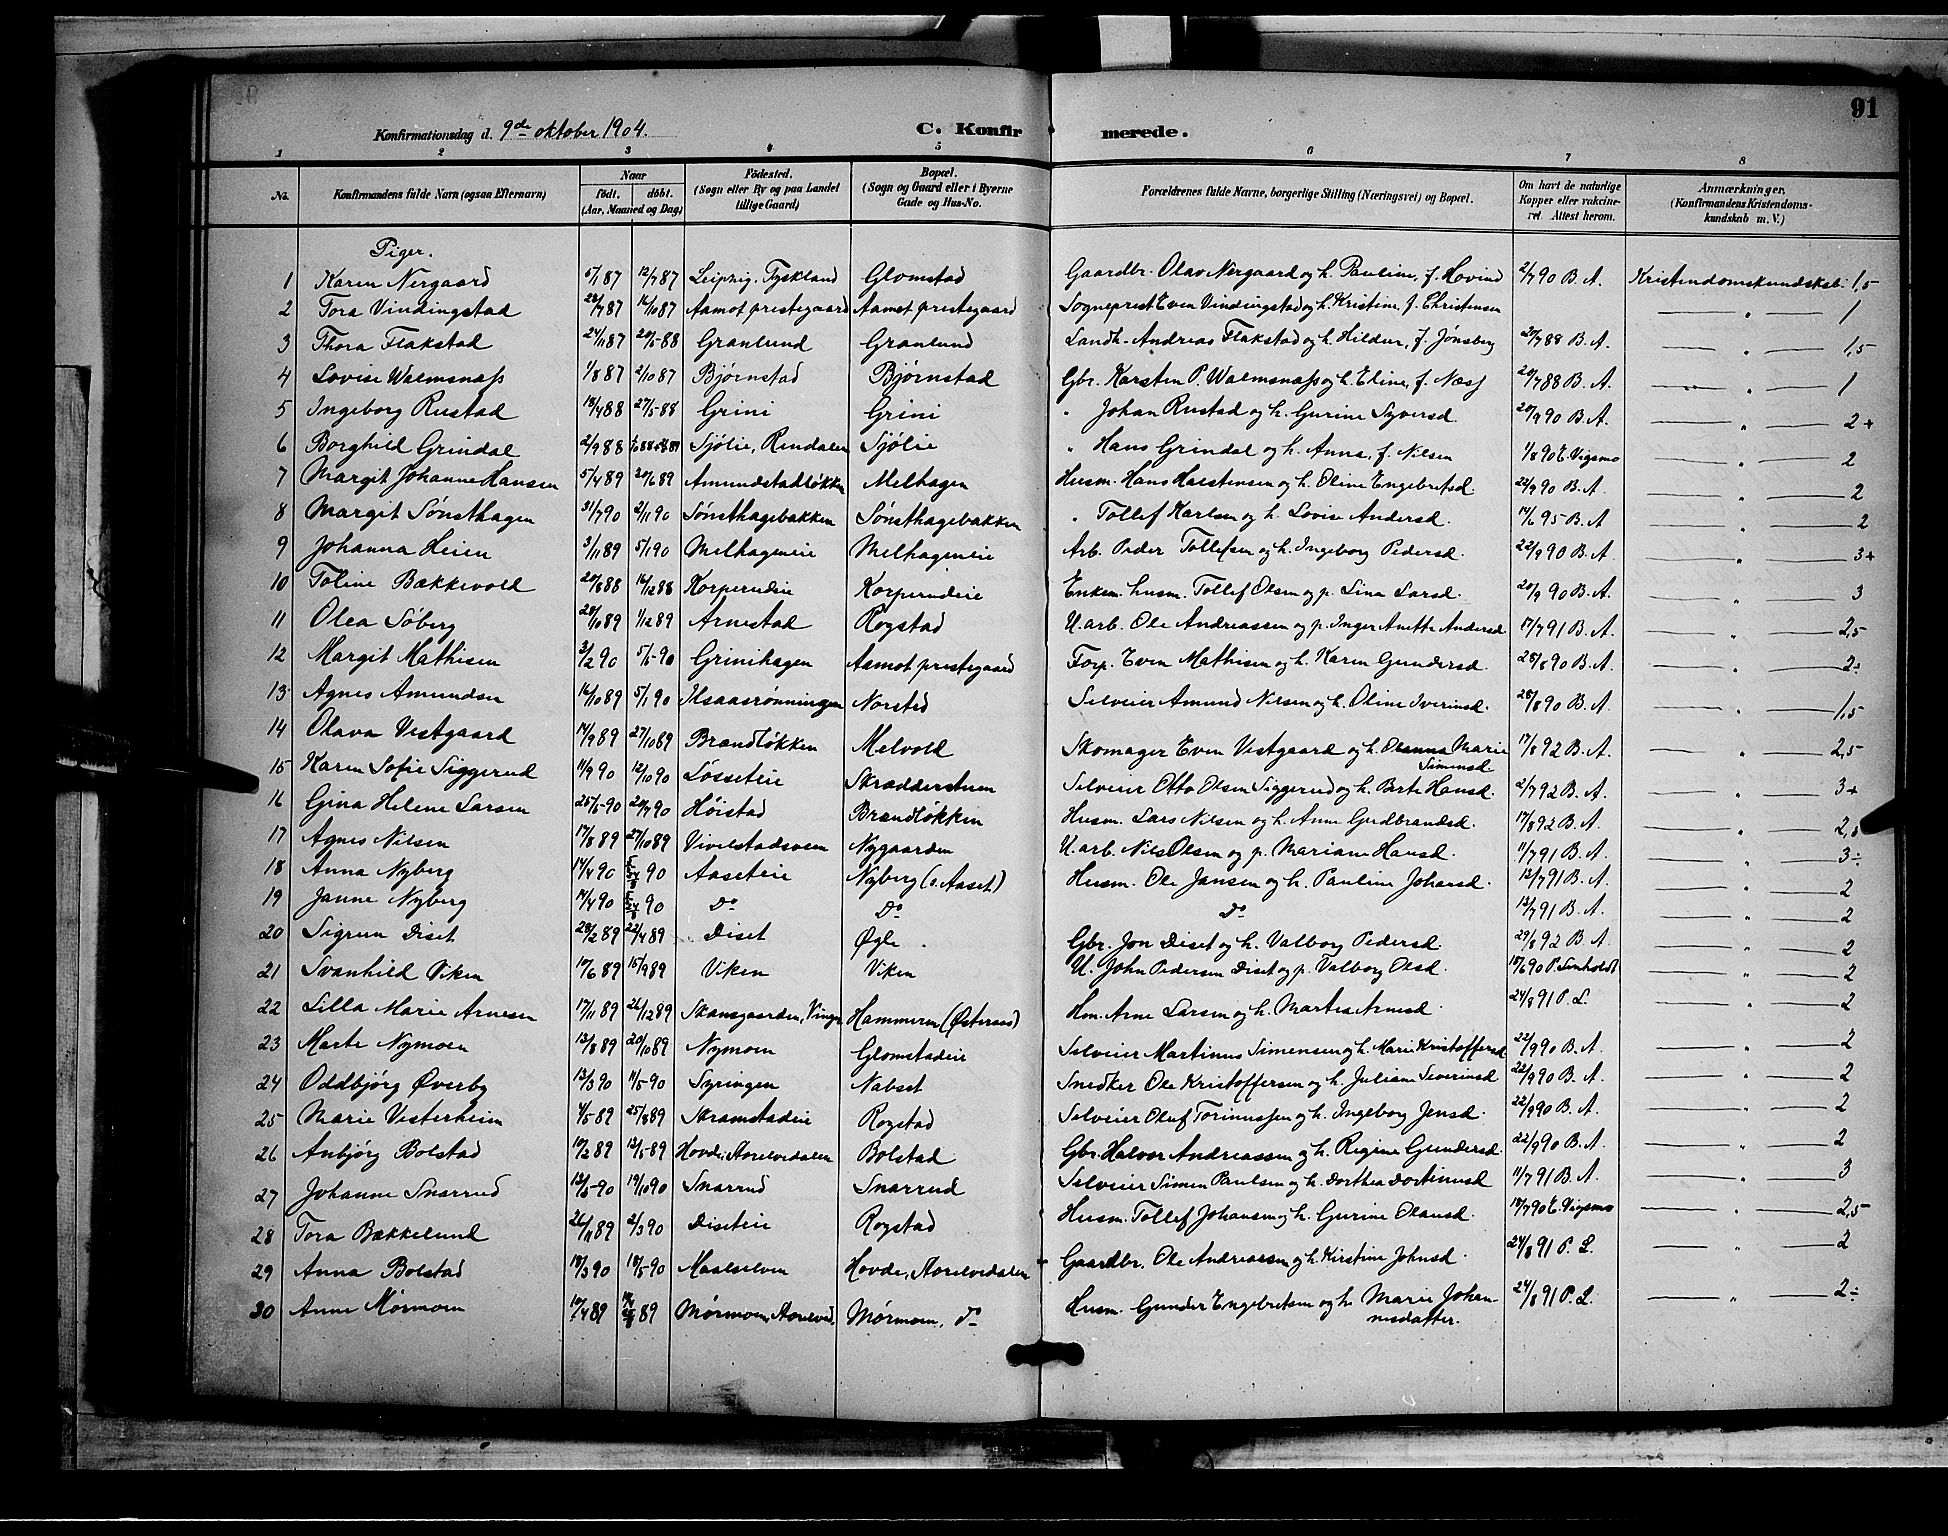 91
Konfirmationsdag d. 9de oktober 1904.
C. Konfirmerede.
1 2 3 4 5 6 7 8
No. Konfirmandens fulde Navn (ogsaa Efternavn) Naar födt. döbt. (Aar, Maaned og Dag) Födested. (Sogn eller By og paa Landet tillige Gaard) Bopæl. (Sogn og Gaard eller i Byerne Gade og Hus-No. Forældrenes fulde Navne, borgerlige Stilling (Næringsvei) og Bopæl. Om havt de naturlige Kopper eller vakcineret. Attest herom. Anmærkninger. (Konfirmandens Kristendomskundskab m. V.)
Piger.
1 Karen Nergaard 5/1 87 12/7 87 Leipzig, Tyskland Glomstad Gaardbr. Olav Nergaard og h. Pauline, f. Hovind 2/7 90 B. A. Kristendomskundskab: 1,5
2 Tora Vindingstad 28/7 87 16/10 87 Aamot prestegaard Aamot prestegaard Sogneprest Even Vindingstad og h. Kristine, f. Christensen — " — 1
3 Thora Flakstad 24/11 87 20/5 88 Granlund Granlund Landh. Andreas Flakstad og h. Hildur, f. Jønsberg 20/7 88 B. A. — " — 1,5
4 Lovise Walmsnæss 1/8 87 2/10 87 Bjørnstad Bjørnstad Gbr. Karsten P. Walmsnæss og h. Eline, f. Næss 20/7 88 B. A. — " — 1
5 Ingeborg Rustad 18/4 88 27/5 88 Grini Grini " Johan Rustad og h. Gurine Syversd 20/9 90 B. A. — " — 2+
6 Borghild Grindal 2/9 88 Sjølie, Rendalen Sjølie " Hans Grindal og h. Anna, f. Nilsen 1/8 90 E. Vigsmo — " — 2
7 Margit Johanne Hansen 5/4 89 20/6 89 Amundstadløkken Melhagen Husm. Hans Karstensen og h. Oline Engebretsd. 22/9 90 B. A. — " — 2
8 Margit Sønsthagen 31/7 90 2/11 90 Sønsthagebakken Sønsthagebakken " Tollef Karlsen og h. Lovise Andersd. 14/6 95 B. A — " — 2
9 Johanna Heien 3/11 89 5/1 90 Melhageneie Melhageneie Arb. Peder Tollefsen og h. Ingeborg Pedersd. 22/9 90 B. A. — " — 3+
10 Toline Bækkevold 20/8 88 16/12 88 Korperudeie Korperudeie Enkem. husm. Tollef Olsen og p. Lina Larsd. 20/9 90 B. A. — " — 3
11 Olea Søberg 28/10 89 1/12 89 Arnestad Rogstad U. arb. Ole Andreassen og p. Inger Anette Andersd 17/7 91 B. A. — " — 2,5
12 Margit Mathisen 3/2 90 5/5 90 Grinihagen Aamot prestegaard Forp. Even Mathisen og h. Karen Gundersd. 28/8 90 B. A. — " — 2÷
13 Agnes Amundsen 16/10 89 5/1 90 Ilsaasrønningen Norsted Selveier Amund Nilsen og h. Oline Iverinsd. 28/8 90 B. A. — " — 1,5
14 Olava Vestgaard 14/9 89 27/10 89 Brændløkken Melvold Skomager Even Vestgaard og h. Oleanna Marie Simensd. 17/8 92 B. A. — " — 2,5
15 Karen Sofie Siggerud 11/9 90 12/10 90 Løsseteie Skrædderstuen Selveier Otto Olsen Siggerud og h. Berte Hansd. 2/7 92 B. A. — " — 3+
16 Gina Helene Larsen 25/5 90 20/7 90 Høistad Brændløkken Husm. Lars Nilsen og h. Anne Gudbrandsd. 17/8 92 B. A. — " — 2,5
17 Agnes Nilsen 17/8 89 27/10 89 Vivelstadsveen Nygaarden U. arb. Nils Olsen og p. Mariane Hansd. 11/7 91 B. A. — " — 3÷
18 Anna Nyberg 14/4 90 90 Aaseteie Nyberg (v. Aaset) Husm. Ole Jansen og h. Pauline Johansd. 12/7 91 B. A. — " — 2
19 Janne Nyberg 14/4 90 90 Do Do Do 12/7 91 B. A. — " — 2
20 Sigrun Diset 28/2 89 22/4 89 Diset Øgle Gbr. Jon Diset og h. Valborg Pedersd. 29/8 92 B. A. — " — 2
21 Svanhild Viken 10/6 89 15/9 89 Viken Viken U. John Pedersen Diset og p. Valborg Olsd. 18/6 90 P. — " — 2
22 Lilla Marie Arnesen 17/11 89 26/12 89 Skansgaarden, Vinger Hammeren (Østeraas) Hm. Arne Larsen og h. Martea Arnesd. 24/8 91 P. L. — " — 2
23 Marte Nymoen 13/8 89 20/10 89 Nymoen Glomstadeie Selveier Martinus Simensen og h. Marie Kristoffersd 22/9 90 B. A. — " — 2
24 Oddbjørg Øverby 13/3 90 11/5 90 Syringen Nabset Snedker Ole Kristoffersen og h. Juliane Severinsd 22/9 90 B. A. — " — 2
25 Marie Vesterheim 4/5 89 25/8 89 Skramstadeie Rogstad Selveier Oluf Torinussen og h. Ingeborg Jensd. 22/9 90 B. A. — " — 2
26 Anbjørg Bolstad 10/2 89 12/5 89 Hovde, Sorelvedalen Bolstad Gbr. Halvor Andreassen og h. Regine Gundersd. 22/9 90 B. A. — " — 2
27 Johanne Snarrud 12/5 90 19/10 90 Snarrud Snarrud Selveier Simen Paulsen og h. Dorthea Dortinusd 11/7 91 B. A — " — 3
28 Tora Bækkelund 26/11 89 2/3 90 Diseteie Rogstad Husm. Tollef Johansen og h. Gurine Olausd. 18/7 90 E. Vigsmo — " — 2,5
29 Anna Bolstad 18/3 90 18/5 90 Maalselven Hovde, Sorelvedalen Gaardbr. Ole Andreassen og h. Kirstine Johnsd. 24/8 91 P. L. — " — 2
30 Anne Mørmoen 10/4 89 89 Mørmoen, Mørmoen, do Husm. Gunder Engebretsen og h. Marie Johannesdatter. 24/8 91 P. L. — " — 2÷